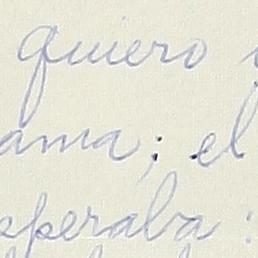 quiero
ama; el
speraba: